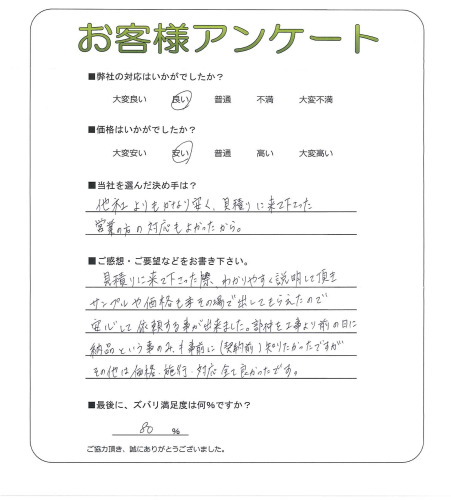 お客様アンケート
■弊社の対応はいかがでしたか？
大変良い　良い　普通　不満　大変不満
■価格はいかがでしたか？
大変安い　安い　普通　高い　大変高い
■当社を選んだ決め手は？
他社よりもかなり安く、見積りに来て下さった
営業の方の対応もよかったから。
■ご感想・ご要望などをお書き下さい。
見積りに来て下さった際、わかりやすく説明して頂き
サンプルや価格もその場で出してもらえたので
安心して依頼する事が出来ました。部材を工事より前の日に
納品という事のみ事前に（契約前）知りたかったですが
その他は価格・施行・対応全て良かったです。
■最後に、ズバリ満足度は何%ですか？
80 %
ご協力頂き、誠にありがとうございました。